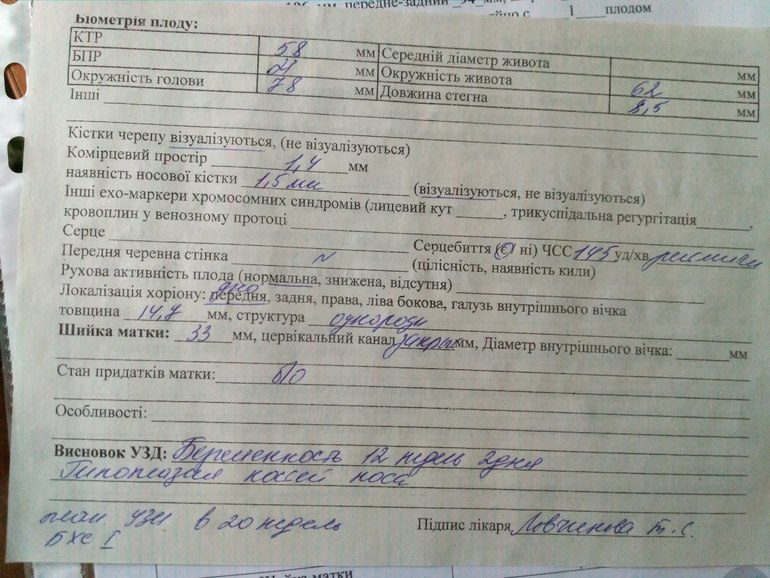 передне-задний 54 мм,
1 плодом
Біометрія плоду:
КТР 58 мм Середній діаметр живота мм
БПР 21 мм Окружність живота 62 мм
Окружність голови 78 мм Довжина стегна 8,5 мм
Інші
Кістки черепу візуалізуються, (не візуалізуються)
Комірцевий простір 1,4 мм
наявність носової кістки 1,5 мм (візуалізуються, не візуалізуються)
Інші ехо-маркери хромосомних синдромів (лицевий кут , трикуспідальна регургітація ,
кровоплин у венозному протоці
Серце Серцебиття (є, ні) ЧСС 145 уд/хв ритмичн
Передня черевна стінка N (цілісність, наявність кили)
Рухова активність плода (нормальна, знижена, відсутня)
дно
Локалізація хоріону: передня, задня, права, ліва бокова, галузь внутрішнього вічка
товщина 14,7 мм, структура однородн
Шийка матки: 33 мм, цервікальний канал закрыт мм, Діаметр внутрішнього вічка: мм
Стан придатків матки: б/о
Особливості:
Висновок УЗД: Беременность 12 недель 2дня
Гипоплазия костей носа
план. УЗИ в 20 недель
БХС I
Підпис лікаря
Шийка матки